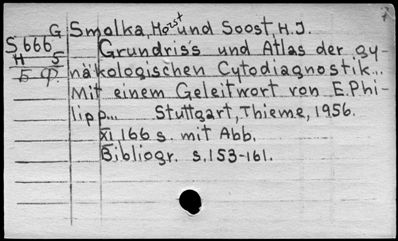 G Smolka, Horst und Soost, H.J.
S 666 Grundriss und Atlas der gy-
H 5 näkologischen Cytodiagnostik...
Б Ф. Mit einem Geleitwort von E. Phi-
lipp... Stuttgart, Thieme, 1956.
XI 166 s. mit Abb.
Bibliogr. s. 153-161.